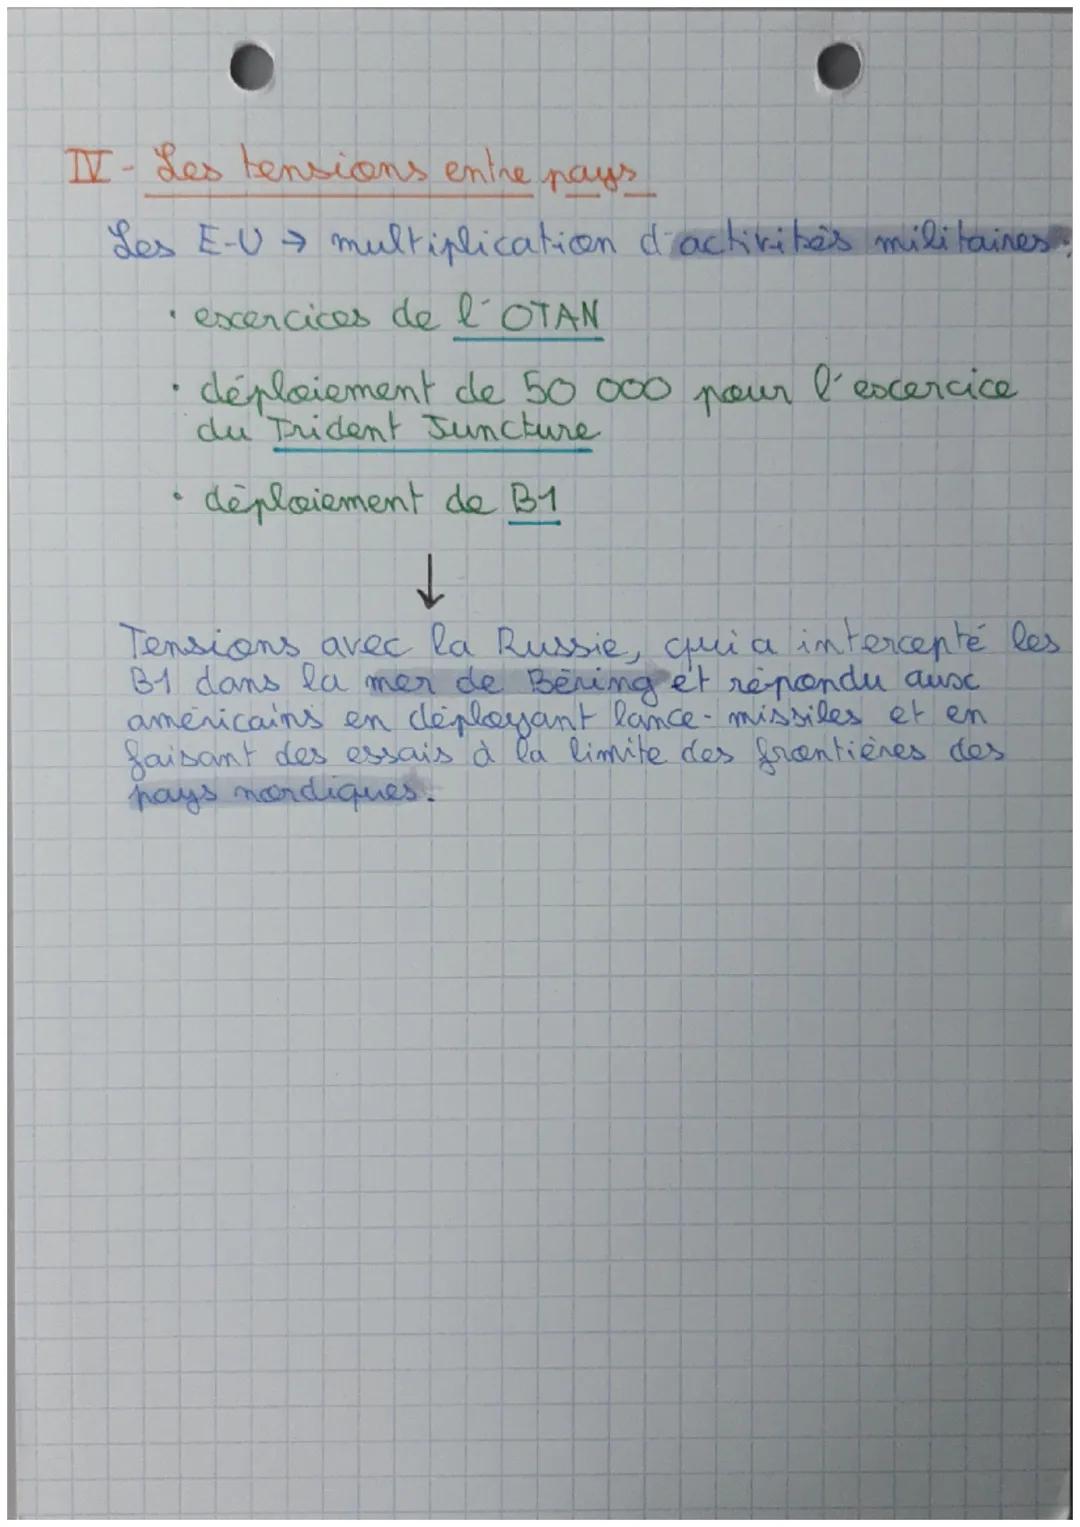 IV - Les tensions entre pays
Les E-U → multiplication d'activités militaires :
• exercices de l'OTAN
• déploiement de 50 000 pour l'exercice
du Trident Juncture
• déploiement de B1
↓
Tensions avec la Russie, qui a intercepté les
B1 dans la mer de Béring et répondu aux
américains en déployant lance-missiles et en
faisant des essais à la limite des frontières des
pays nordiques.